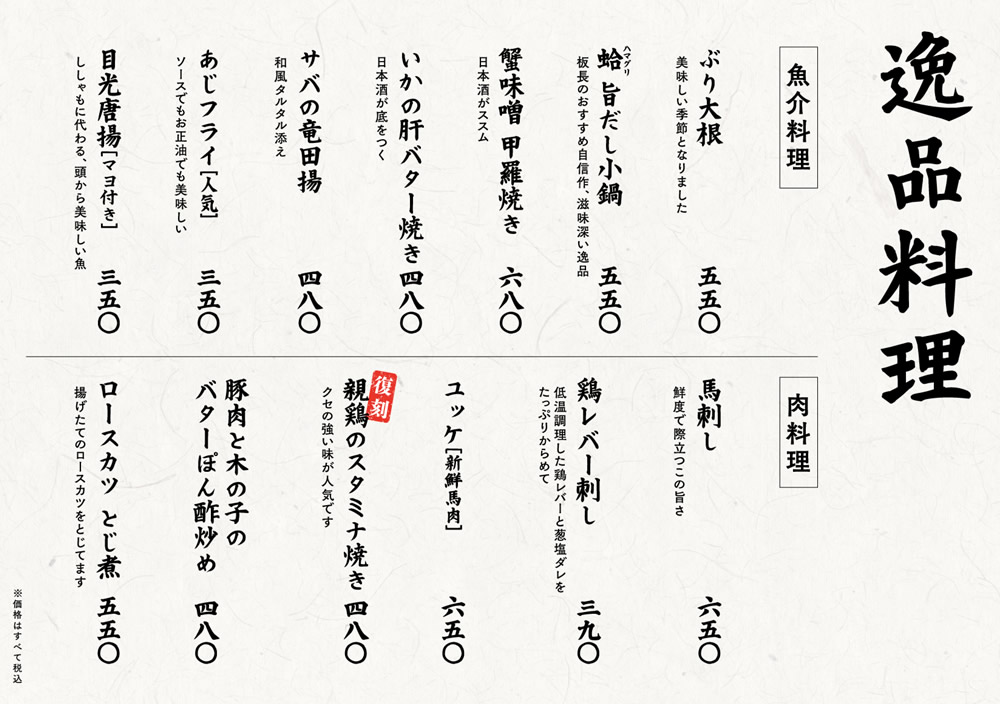 逸品料理
魚介料理
ぶり大根
美味しい季節となりました
五五〇
ハマグリ
蛤 旨だし小鍋
板長のおすすめ自信作、滋味深い逸品
五五〇
蟹味噌 甲羅焼き
日本酒がススム
六八〇
いかの肝バター焼き
日本酒が底をつく
四八〇
サバの竜田揚
和風タルタル添え
四八〇
あじフライ[人気]
ソースでもお正油でも美味しい
三五〇
目光唐揚[マヨ付き]
ししゃもに代わる、頭から美味しい魚
三五〇
肉料理
馬刺し
鮮度で際立つこの旨さ
六五〇
鶏レバー刺し
低温調理した鶏レバーと葱塩ダレを
たっぷりからめて
三九〇
ユッケ[新鮮馬肉]
六五〇
復刻
親鶏のスタミナ焼き
クセの強い味が人気です
四八〇
豚肉と木の子の
バターぽん酢炒め
四八〇
ロースカツ とじ煮
揚げたてのロースカツをとじてます
五五〇
※価格はすべて税込